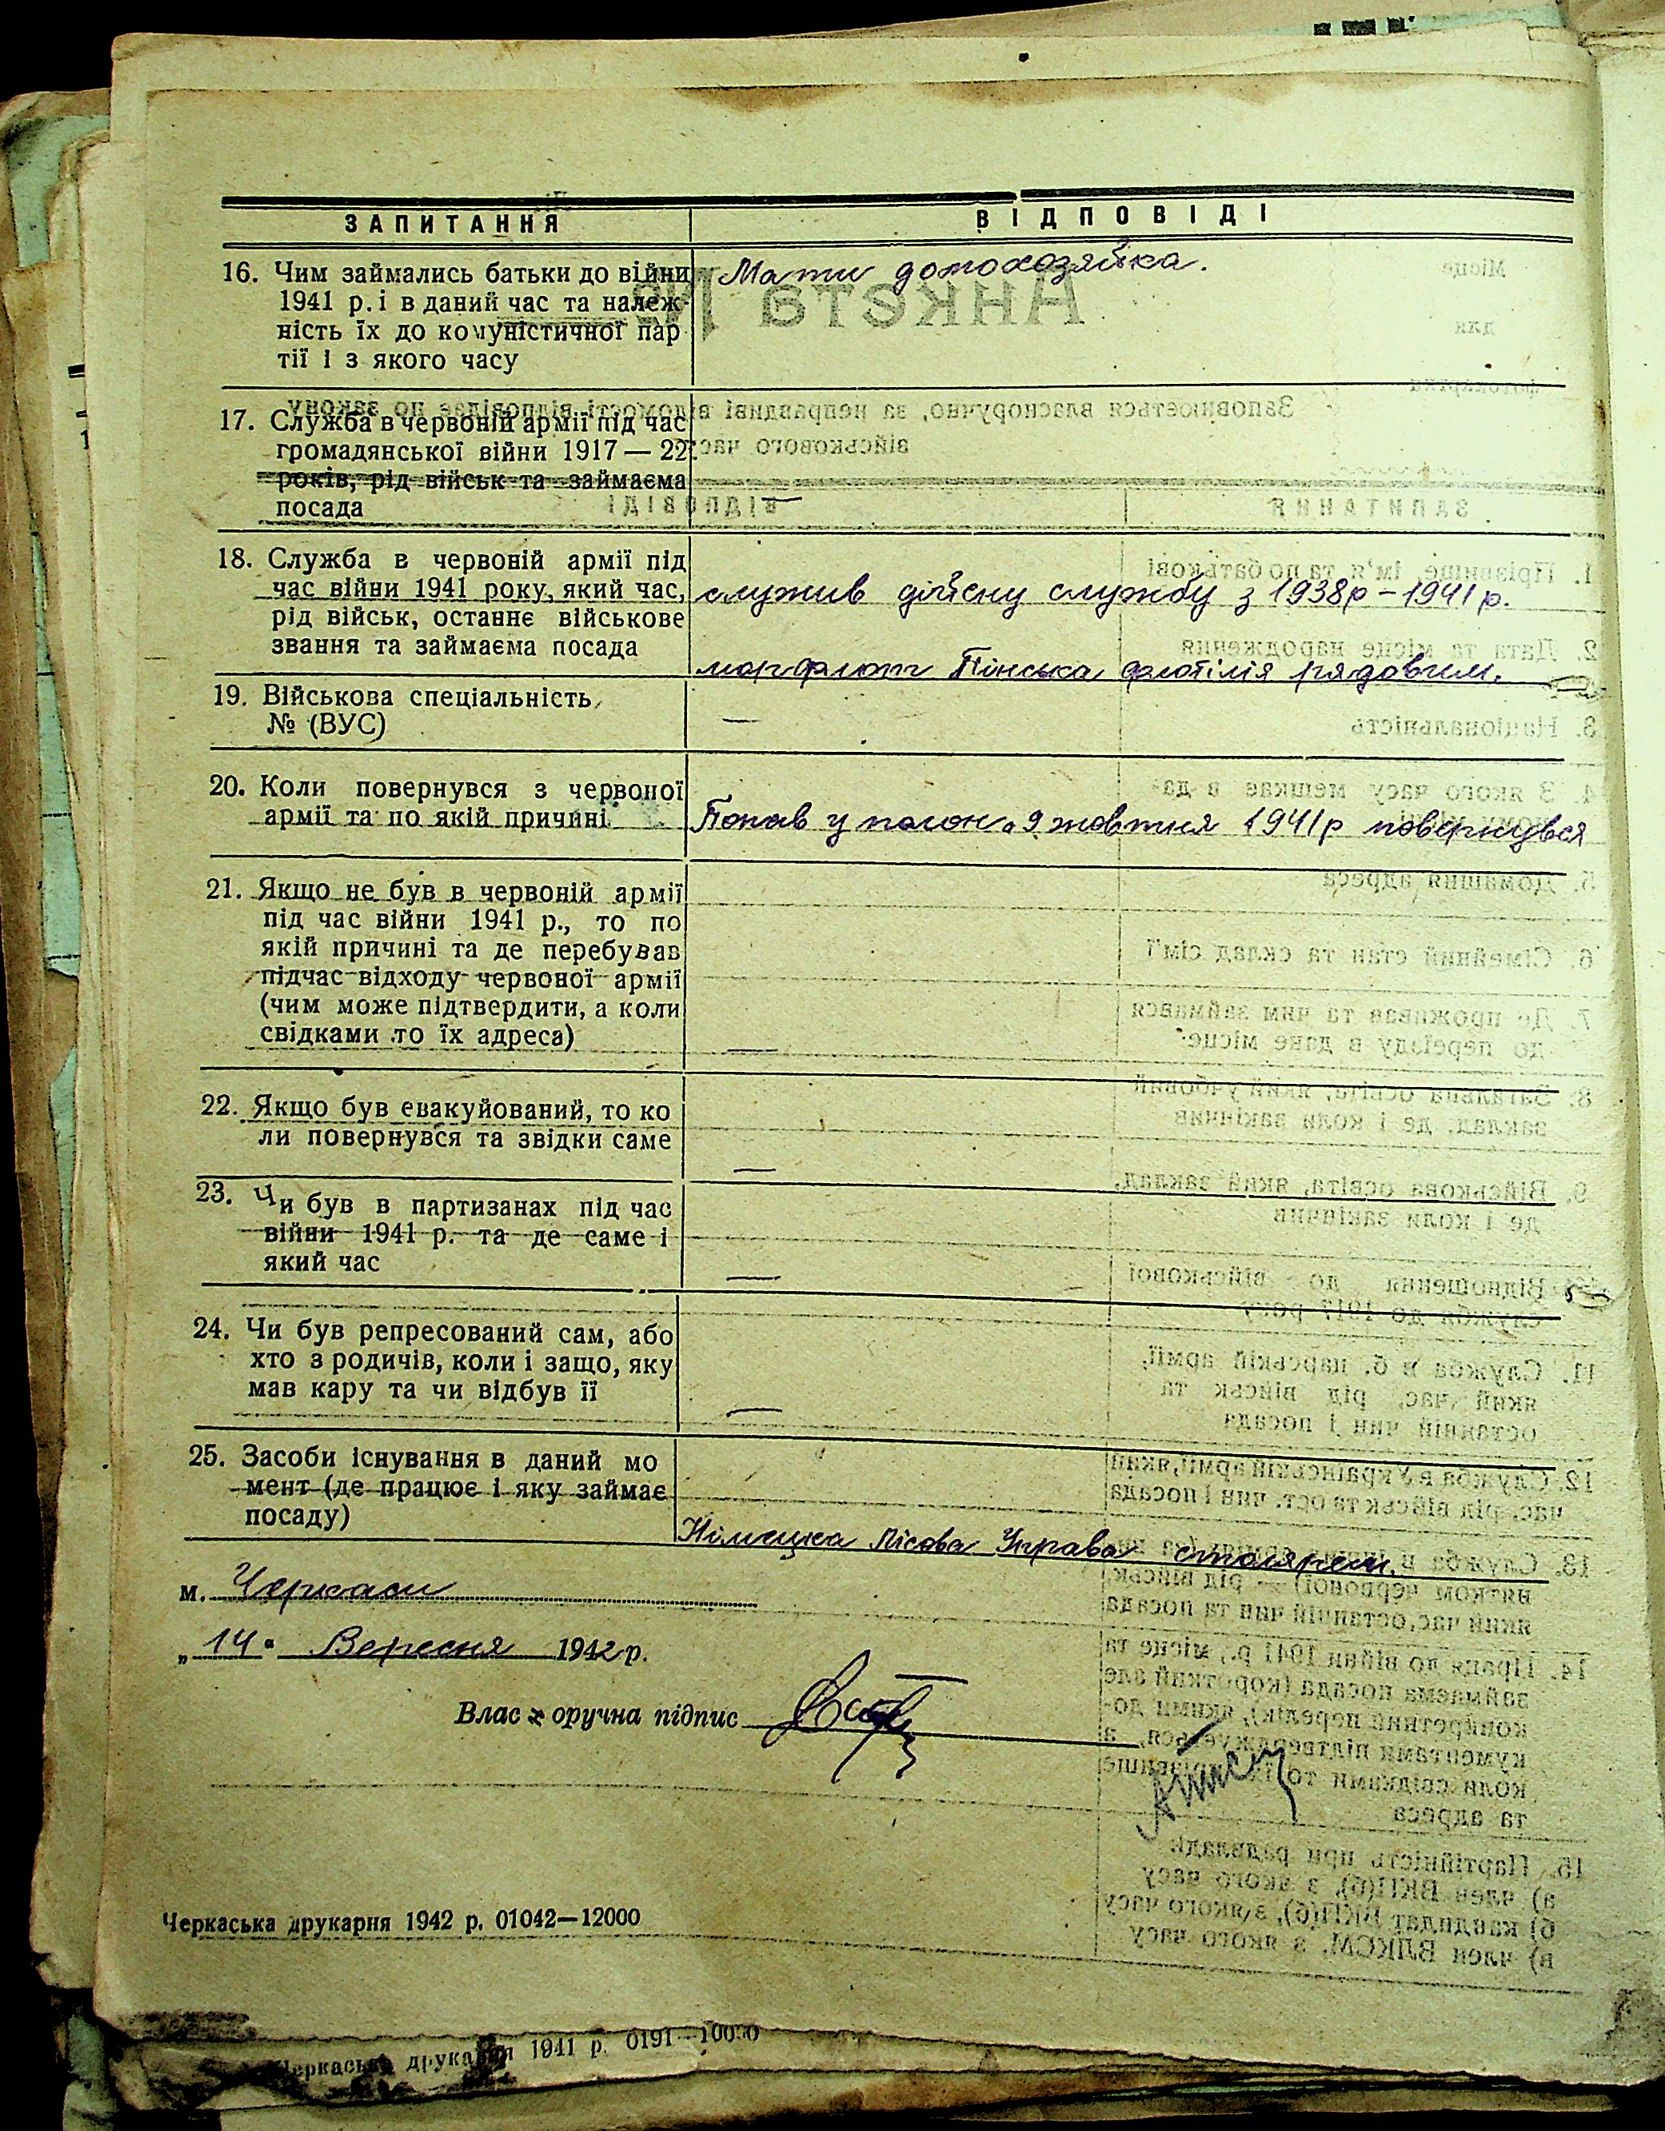 ЗАПИТАННЯ ВІДПОВІДІ
16. Чим займались батьки до війни Мати домохозяйка.
1941 р. і в даний час та належ-
ність їх до комуністичної пар
тії і з якого часу
17. Служба в червоній армії під час
громадянської війни 1917 — 22
років, рід військ та займаєма —
посада
18. Служба в червоній армії під
час війни 1941 року, який час, служив дійсну службу з 1938р – 1941 р.
рід військ, останнє військове
звання та займаєма посада морфлот Пінська флотілія рядовим.
19. Військова спеціальність
№ (ВУС) —
20. Коли повернувся з червоної
армії та по якій причині Попав у полон. 9 жовтня 1941р повернувся
21. Якщо не був в червоній армії
під час війни 1941 р., то по
якій причині та де перебував
підчас відходу червоної армії
(чим може підтвердити, а коли
свідками то їх адреса) —
22. Якщо був евакуйований, то ко
ли повернувся та звідки саме —
23. Чи був в партизанах під час
війни 1941 р. та де саме і
який час —
24. Чи був репресований сам, або
хто з родичів, коли і защо, яку
мав кару та чи відбув її —
25. Засоби існування в даний мо
мент (де працює і яку займає
посаду) Німецька Лісова Управа столярем.
м. Черкаси
„14" Вересня 1942 р.
Власноручна підпис
Черкаська друкарня 1942 р. 01042—12000
Черкаська друкарня 1941 р. 0191—10000